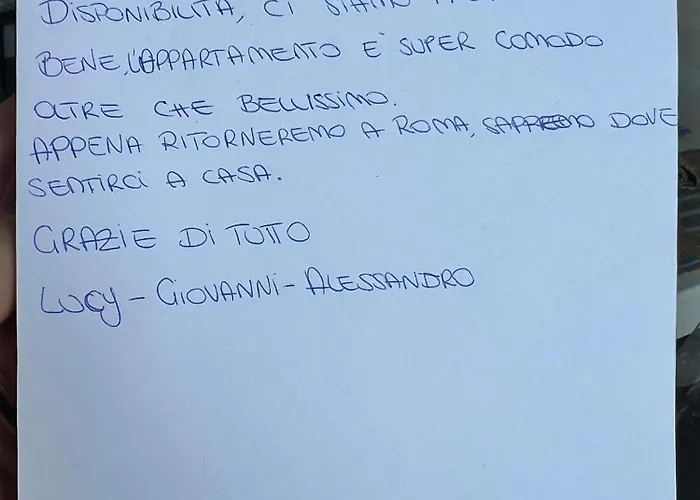 DISPONIBILITÀ, CI SIAMO
BENE, L'APPARTAMENTO È SUPER COMODO
OLTRE CHE BELLISSIMO.
APPENA RITORNEREMO A ROMA, SAPREMO DOVE
SENTIRCI A CASA.
GRAZIE DI TUTTO
LUCY - GIOVANNI - ALESSANDRO